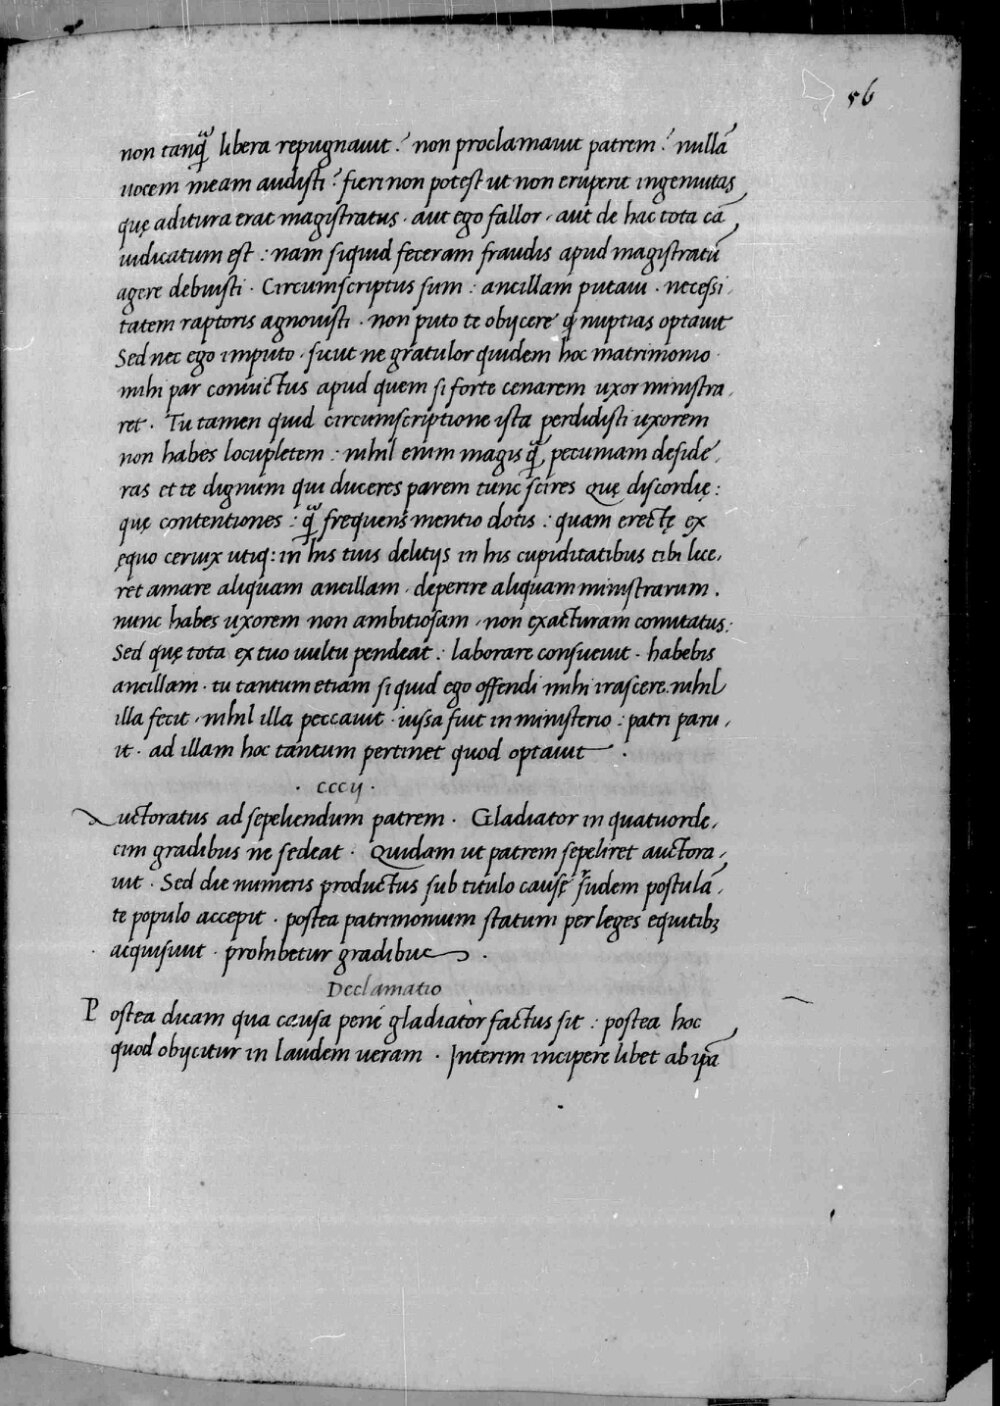 56
non tanq̃ libera repugnauit? non proclamauit patrem? nullā
uocem meam audisti? fieri non potest ut non eruperit ingenuitas
quę aditura erat magistratus · aut ego fallor · aut de hac tota cā
iudicatum est : nam siquid feceram fraudis apud magistratū
agere debuisti · Circumscriptus sum : ancillam putaui · necessi
tatem raptoris agnouisti · non puto te obijcere q̃ nuptias optauit
Sed nec ego imputo · sicut ne gratulor quidem hoc matrimonio ·
mihi par conuictus apud quem si forte cenarem uxor ministra
ret · Tu tamen quid circumscriptione ista perdidisti uxorem
non habes locupletem : nihil enim magis q̃ pecuniam deside
ras et te dignum qui duceres parem tunc scires Quę discordię :
quę contentiones : q̃ frequens mentio dotis : quam erectę ex
ęquo ceruix utiq: in his tuis delitijs in his cupiditatibus tibi lice
ret amare aliquam ancillam · deperire aliquam ministrarum .
nunc habes uxorem non ambitiosam · non exacturam comitatus :
Sed quę tota ex tuo uultu pendeat : laborare consueuit · habebis
ancillam · tu tantum etiam si quid ego offendi mihi irascere · nihil
illa fecit · nihil illa peccauit · iussa fuit in ministerio : patri paru
it · ad illam hoc tantum pertinet quod optauit ·
· cccij ·
Auctoratus ad sepeliendum patrem · Gladiator in quatuorde
cim gradibus ne sedeat · Quidam ut patrem sepeliret auctora
uit · Sed die numeris productus sub titulo causę rudem postulā
te populo accepit · postea patrimonium statum per leges equitibȝ
acquisiuit · prohibetur gradibus ·
Declamatio
Postea dicam qua causa pene gladiator factus sit : postea hoc
quod obijcitur in laudem ueram · Interim incipere libet ab ipā